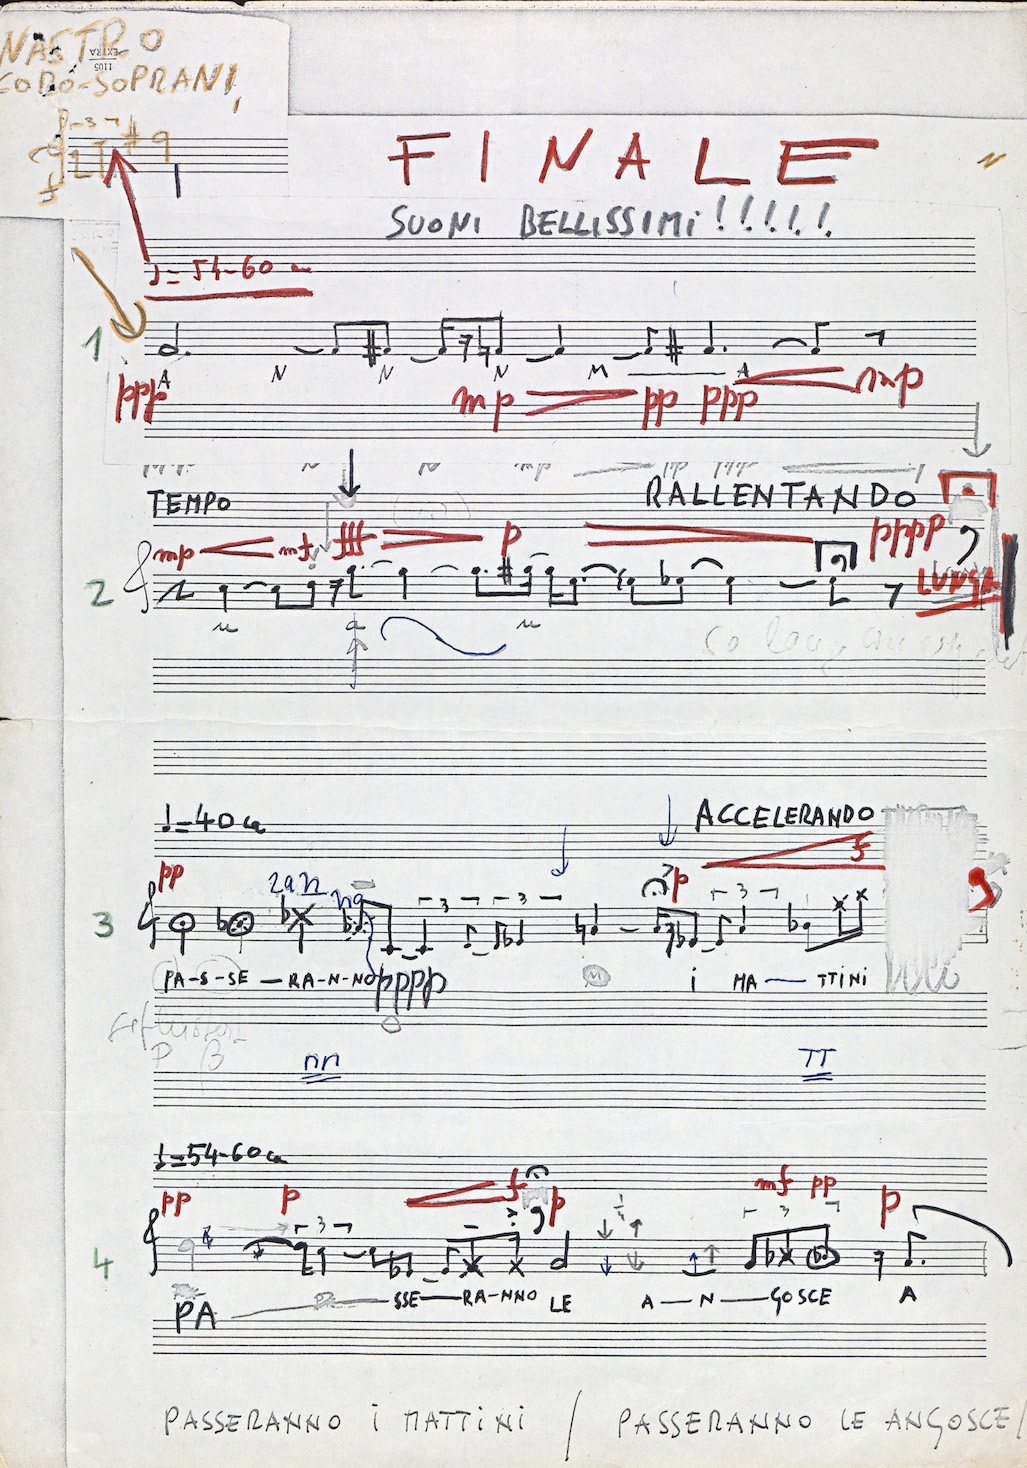 NASTRO
CORO-SOPRANI,
1105
EXTRA
FINALE
SUONI BELLISSIMI!!!!!!
♩=54-60 ca
1
A N N N M A
ppp mp pp ppp mp
TEMPO RALLENTANDO
mp mf fff p pppp
LUNGA
2
u a u
♩=40 ca ACCELERANDO
pp p f
3
PA-S-SE-RA-N-NO pppp M I MA-TTINI
nn TT
♩=54-60 ca
pp p f p mf pp p
4
PA SSE-RA-NNO LE A-N-GOSCE A
PASSERANNO I MATTINI / PASSERANNO LE ANGOSCE/